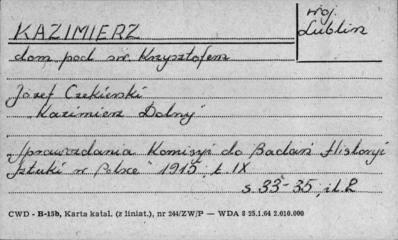 KAZIMIERZ
woj.
Lublin
dom pod św. Krzysztofem
Józef Czekierski
"Kazimierz Dolny"
"Sprawozdania Komisyi do Badań Historyi
Sztuki w Polsce" 1915, t. IX
s. 33-35, il. 2
CWD - B-15b, Karta katal. (z liniat.), nr 244/ZW/P — WDA 8 25.1.64 2.010.000